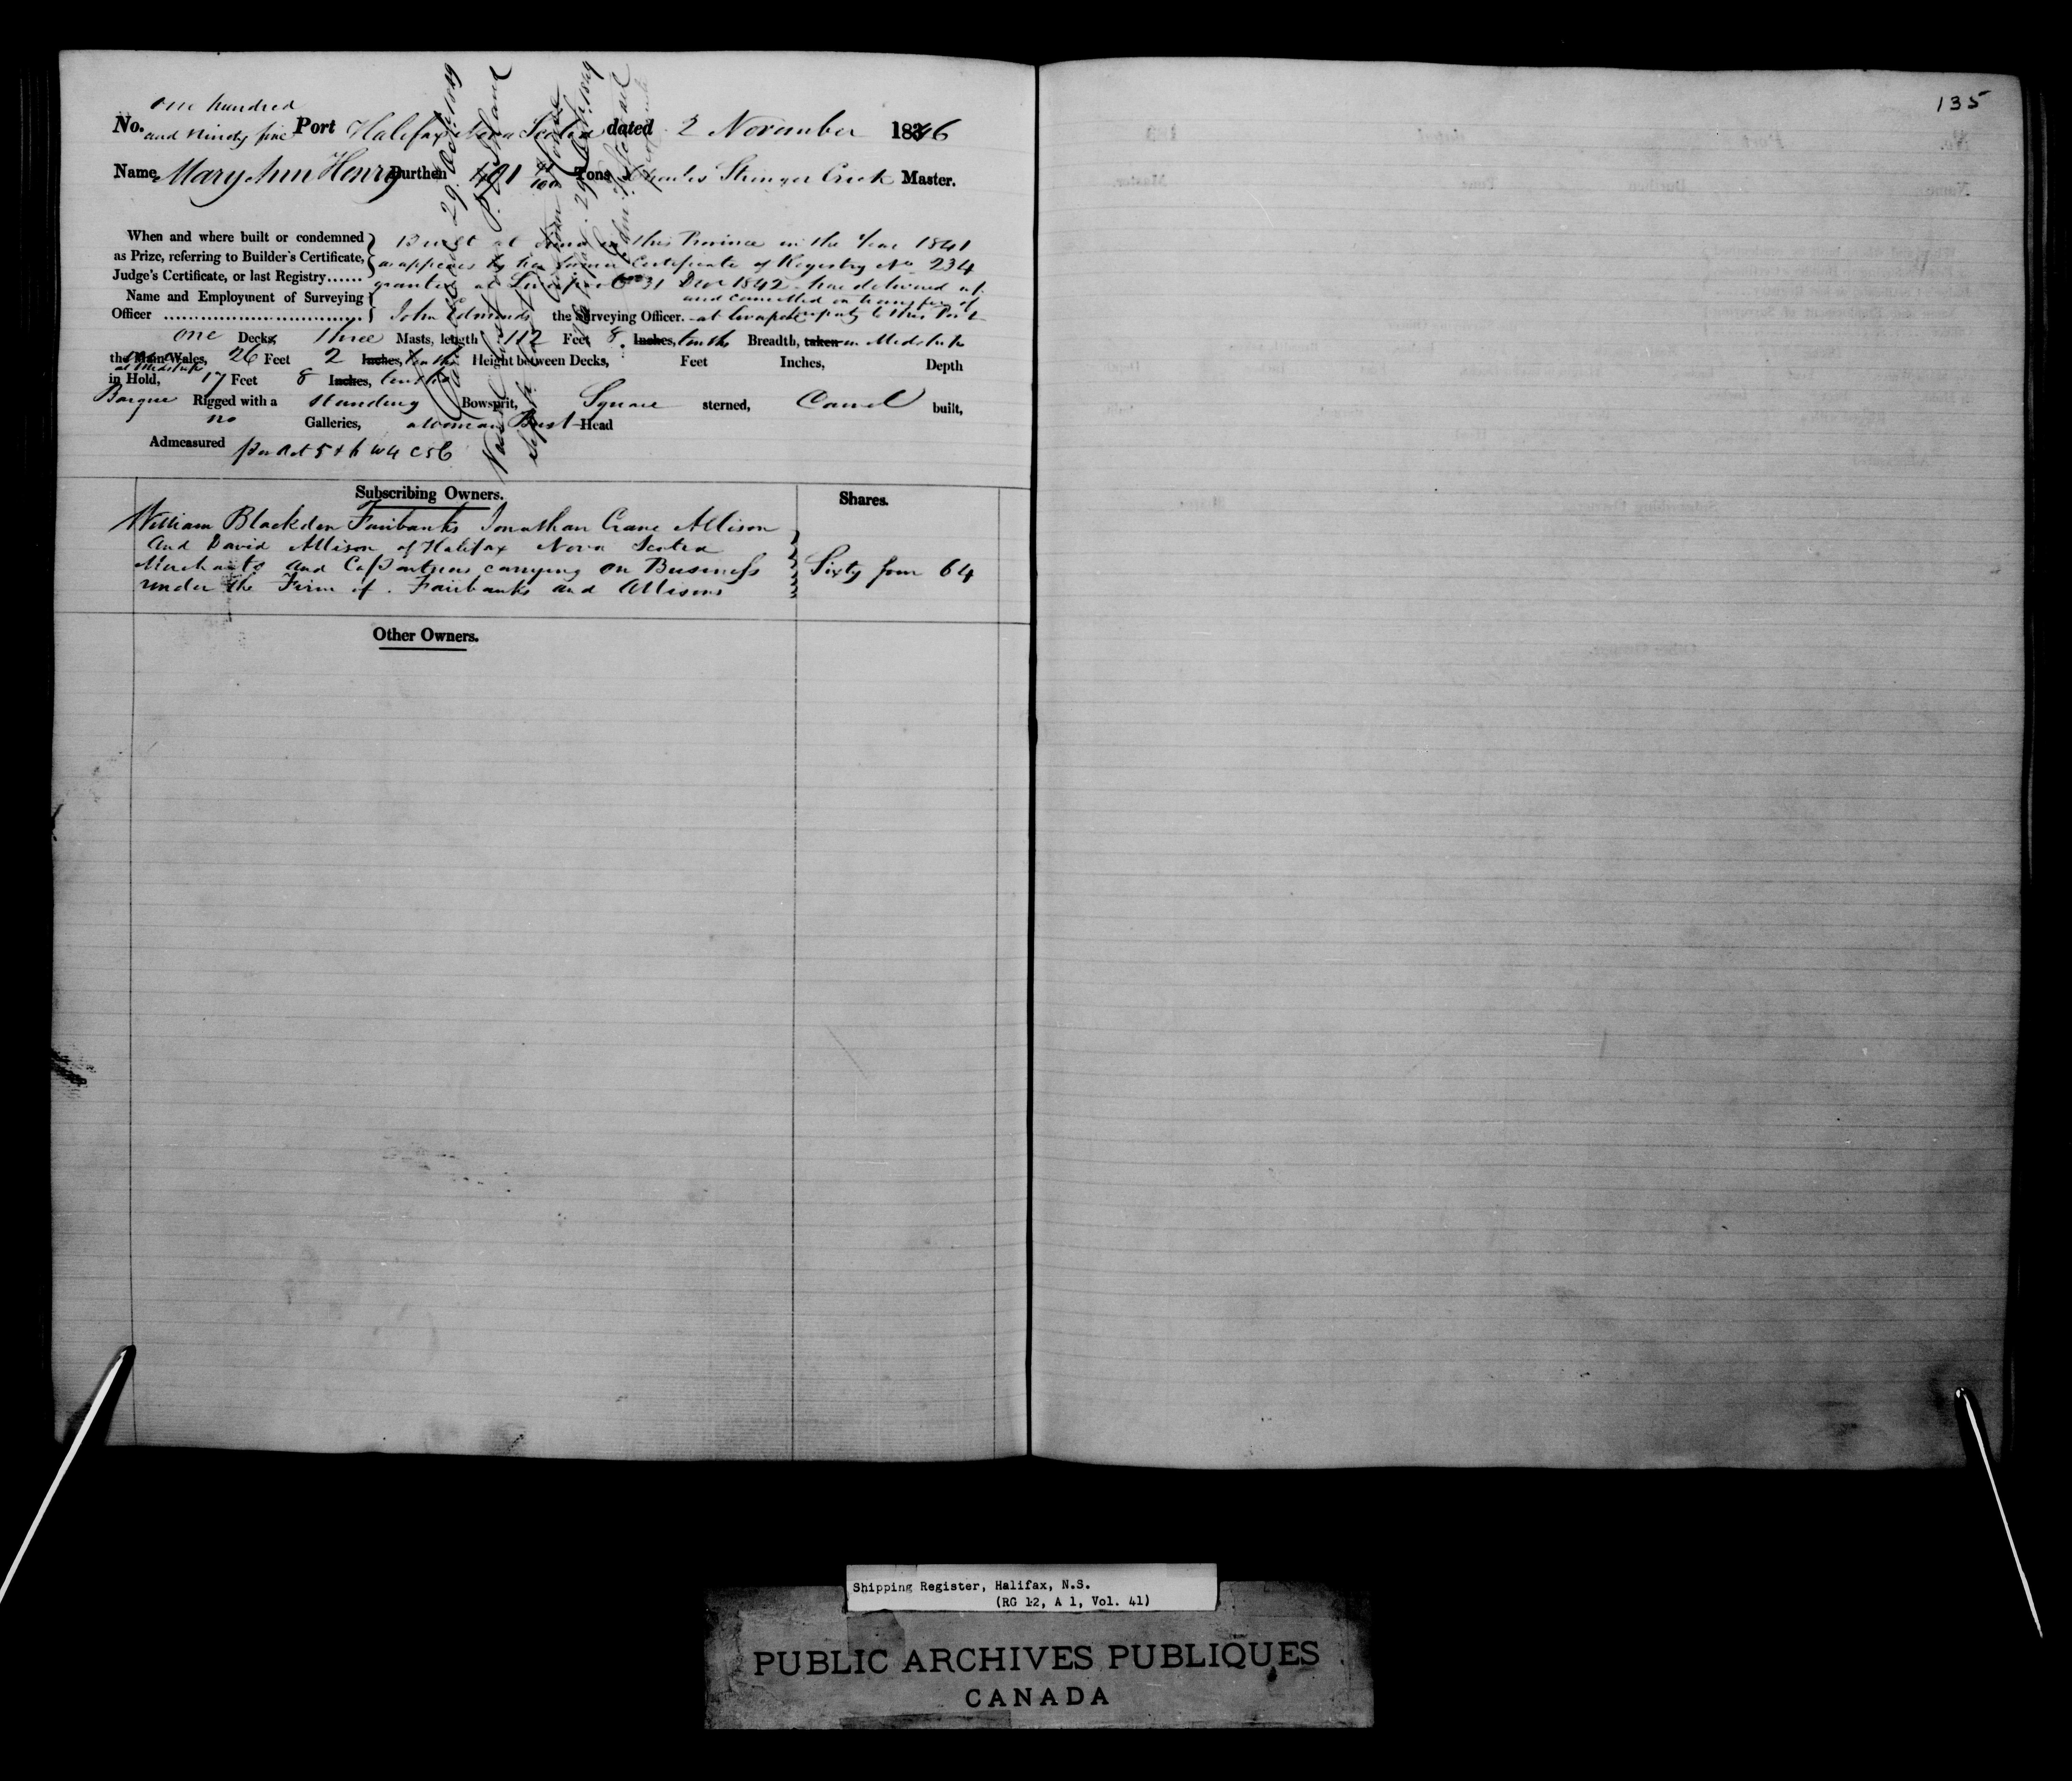 135
one hundred
No. and Ninety five Port Halifax Nova Scotia dated 2 November 1846
Name Mary Ann Henry Burthen 401 Tons Charles Stringer Crick Master.
When and where built or condemned as Prize, referring to Builder's Certificate, Judge's Certificate, or last Registry......
Built at in this Province in the Year 1841
as appears by her former Certificate of Registry No 234
granted at Liverpool 31 Decr 1842 now delivered up
and cancelled on transfer of
Name and Employment of Surveying Officer ................................
John Edmunds the Surveying Officer. at to this Port
one Decks, Three Masts, length 112 Feet 8 Inches, tenths Breadth, taken in Midships
the Main Wales, 26 Feet 2 Inches, tenths Height between Decks, Feet Inches, Depth
at Midships
in Hold, 17 Feet 8 Inches, tenths
Barque Rigged with a standing Bowsprit, Square sterned, Carvel built,
no Galleries, a Woman Bust Head
Admeasured per Act 5 & 6 W 4 C 56
Cancelled 29 Octr 1849
Subscribing Owners. Shares.
William Blackden Fairbanks Jonathan Crane Allison
and David Allison of Halifax Nova Scotia
Merchants and Copartners carrying on Business Sixty four 64
under the Firm of Fairbanks and Allisons
Other Owners.
Shipping Register, Halifax, N.S.
(RG 12, A 1, Vol. 41)
PUBLIC ARCHIVES PUBLIQUES
CANADA